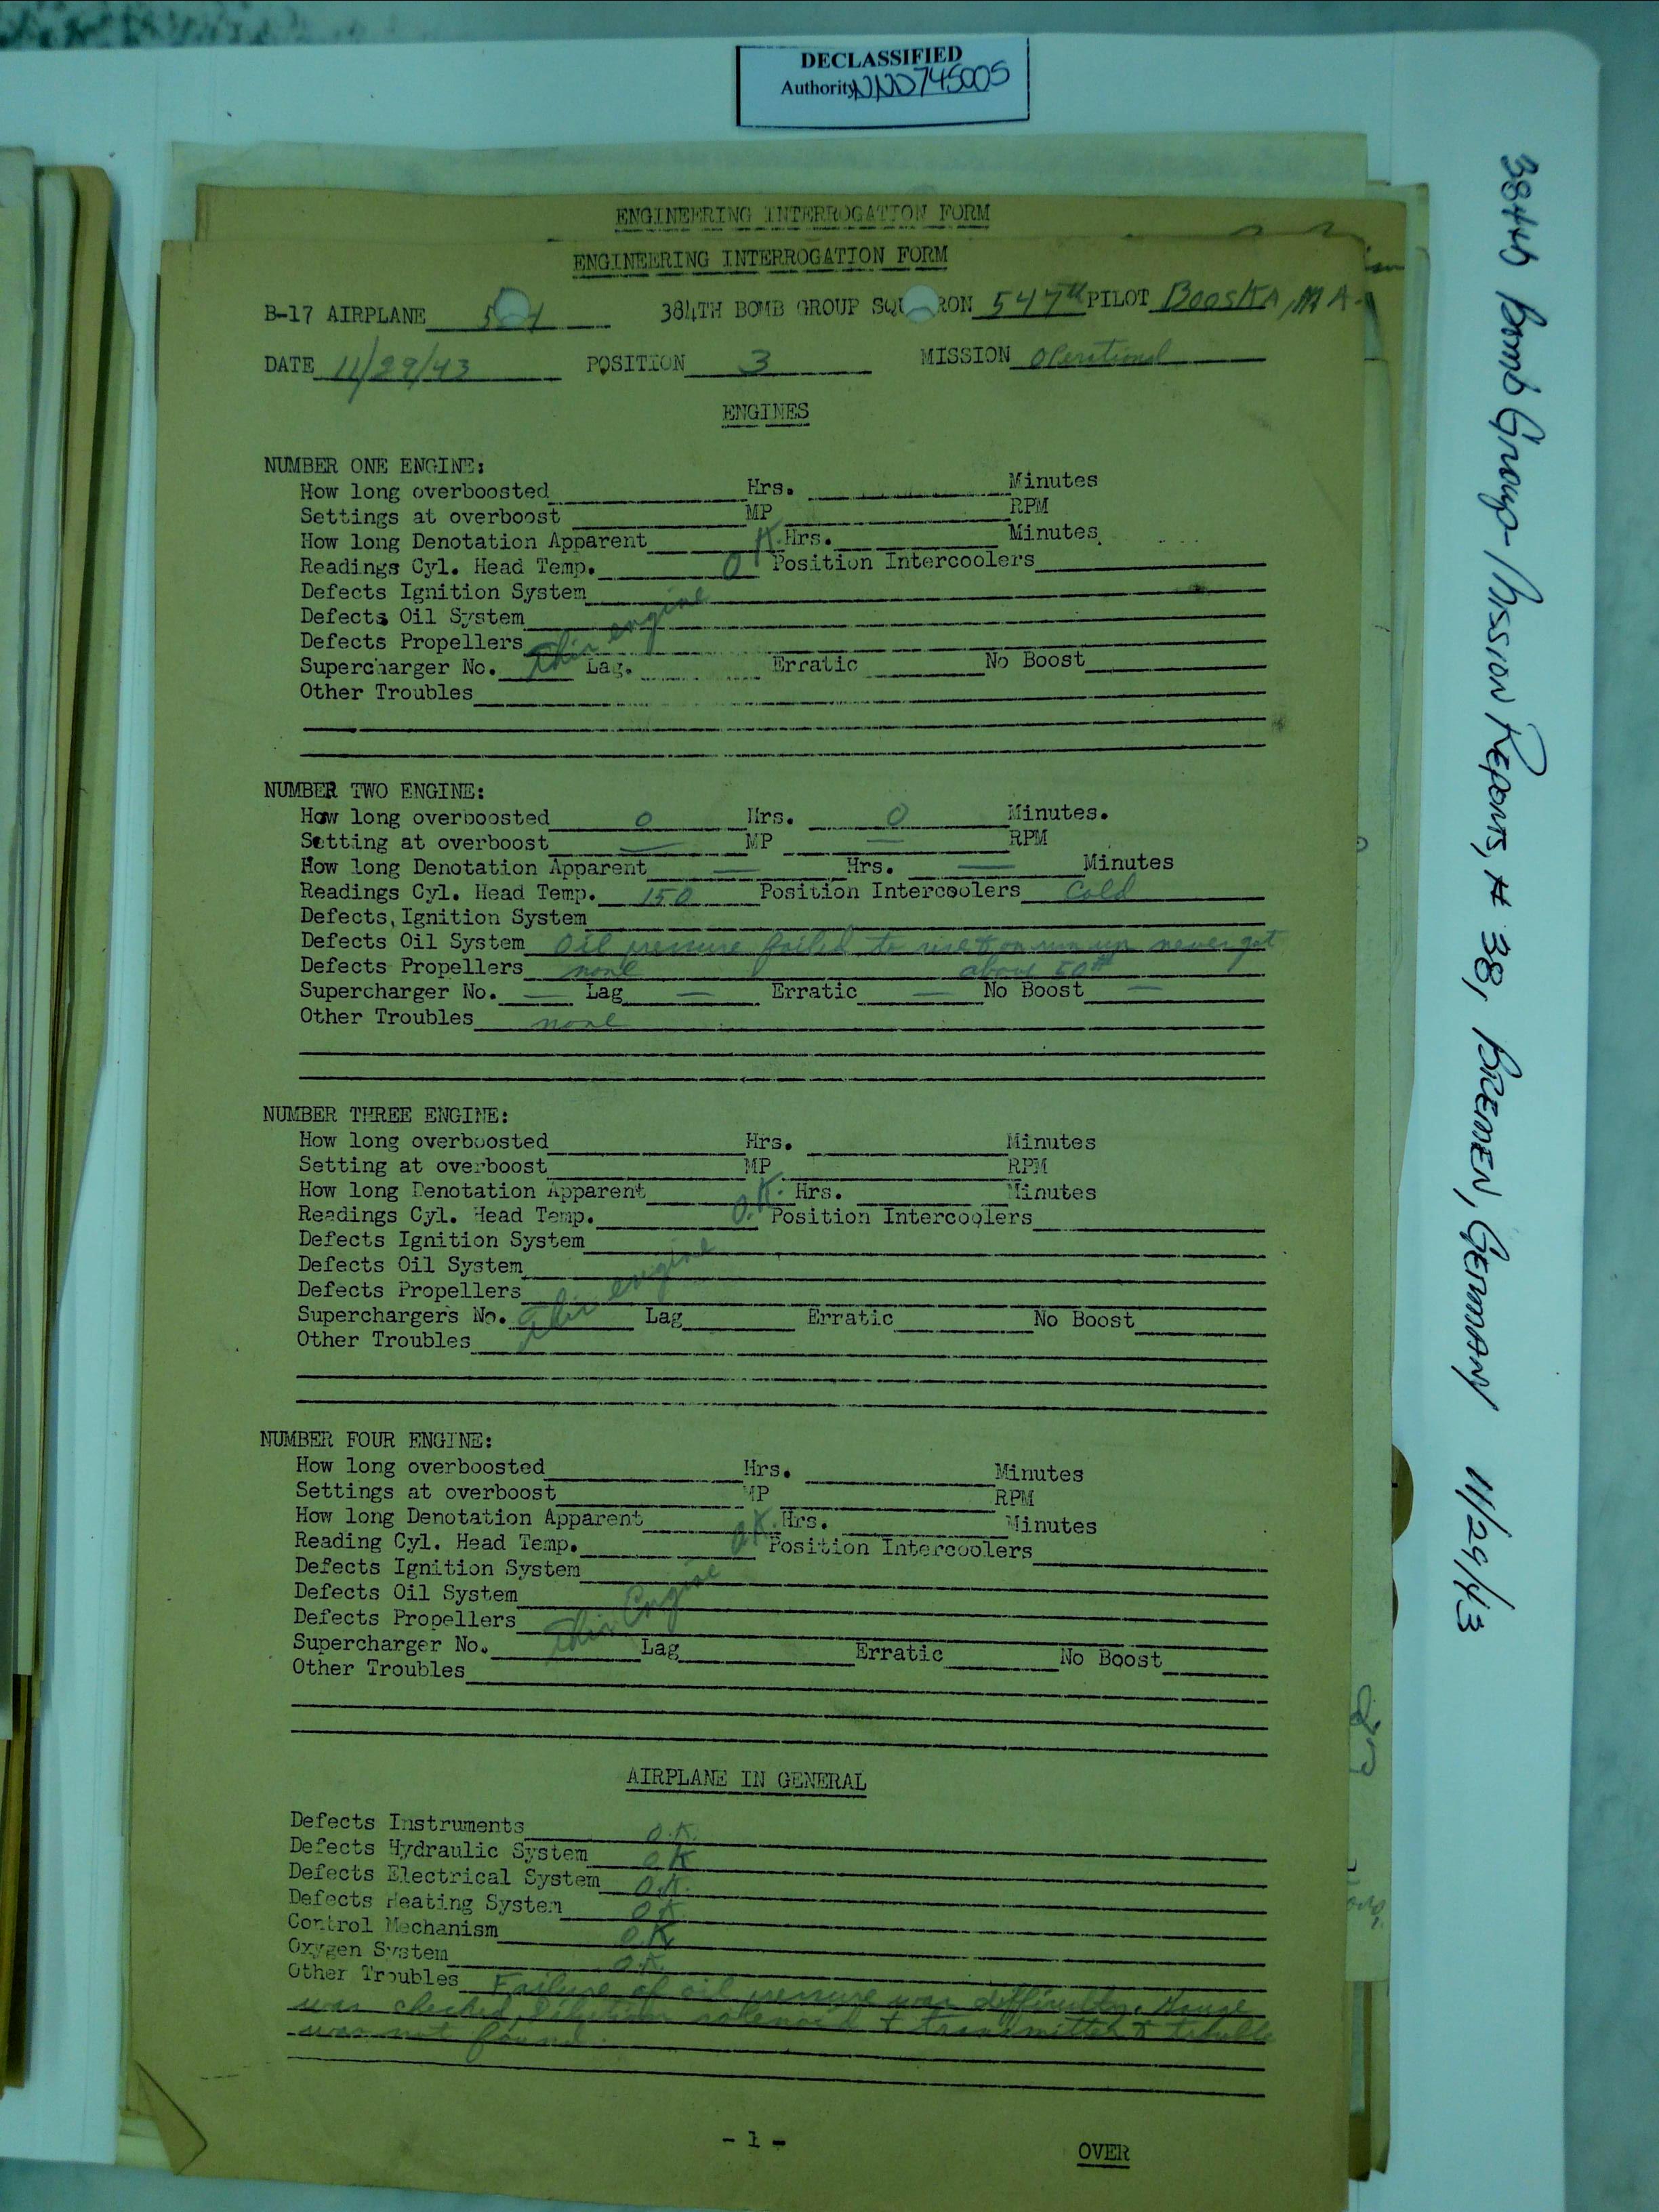 DECLASSIFIED
Authority NND745005
ENGINEERING INTERROGATION FORM
ENGINEERING INTERROGATION FORM
B-17 AIRPLANE 384TH BOMB GROUP SQU RON 547th PILOT Booska, M A.
DATE 11/29/43 POSITION 3 MISSION Operational
ENGINES
NUMBER ONE ENGINE:
How long overboosted Hrs. Minutes
Settings at overboost MP RPM
How long Denotation Apparent Hrs. Minutes
Readings Cyl. Head Temp. Position Intercoolers
Defects Ignition System
Defects Oil System
Defects Propellers
Supercharger No. Lag. Erratic No Boost
Other Troubles
This engine O.K.
NUMBER TWO ENGINE:
How long overboosted 0 Hrs. 0 Minutes.
Setting at overboost — MP — RPM
How long Denotation Apparent — Hrs. — Minutes
Readings Cyl. Head Temp. 150 Position Intercoolers Cold
Defects, Ignition System
Defects Oil System Oil pressure failed to rise on run up never got
above 50#
Defects Propellers none
Supercharger No. — Lag — Erratic — No Boost —
Other Troubles none
NUMBER THREE ENGINE:
How long overboosted Hrs. Minutes
Setting at overboost MP RPM
How long Denotation Apparent Hrs. Minutes
Readings Cyl. Head Temp. Position Intercoolers
Defects Ignition System
Defects Oil System
Defects Propellers
Superchargers No. Lag Erratic No Boost
Other Troubles
This engine O.K.
NUMBER FOUR ENGINE:
How long overboosted Hrs. Minutes
Settings at overboost MP RPM
How long Denotation Apparent Hrs. Minutes
Reading Cyl. Head Temp. Position Intercoolers
Defects Ignition System
Defects Oil System
Defects Propellers
Supercharger No. Lag Erratic No Boost
Other Troubles
This Engine O.K.
AIRPLANE IN GENERAL
Defects Instruments O.K.
Defects Hydraulic System O.K
Defects Electrical System O.K.
Defects Heating System O.K
Control Mechanism O.K
Oxygen System O.K.
Other Troubles Failure of oil pressure was difficulty. Guage
was checked, Dilution solenoid & transmitter & trouble
was not found.
- 1 -
OVER
384th Bomb Group - Mission Reports, # 38, BREMEN, GERMANY 11/29/43